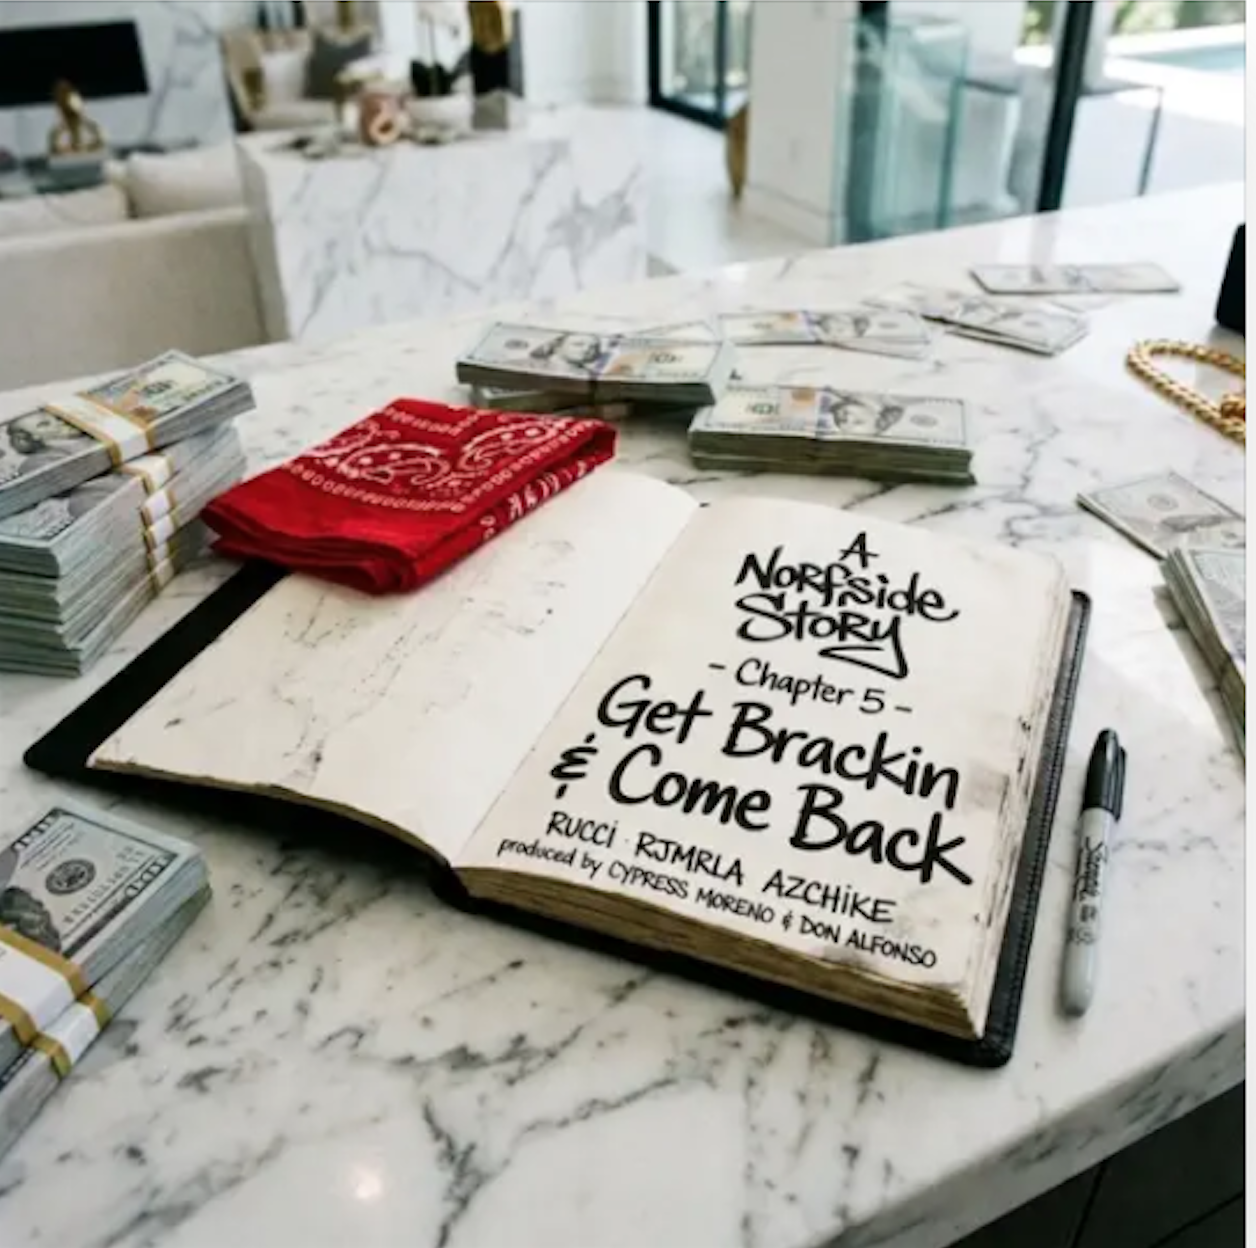 A
Norfside
Story
- Chapter 5 -
Get Brackin
& Come Back
RUCCi · RJMRLA AZCHiKE
produced by CYPRESS MORENO & DON ALFONSO
Sharpie